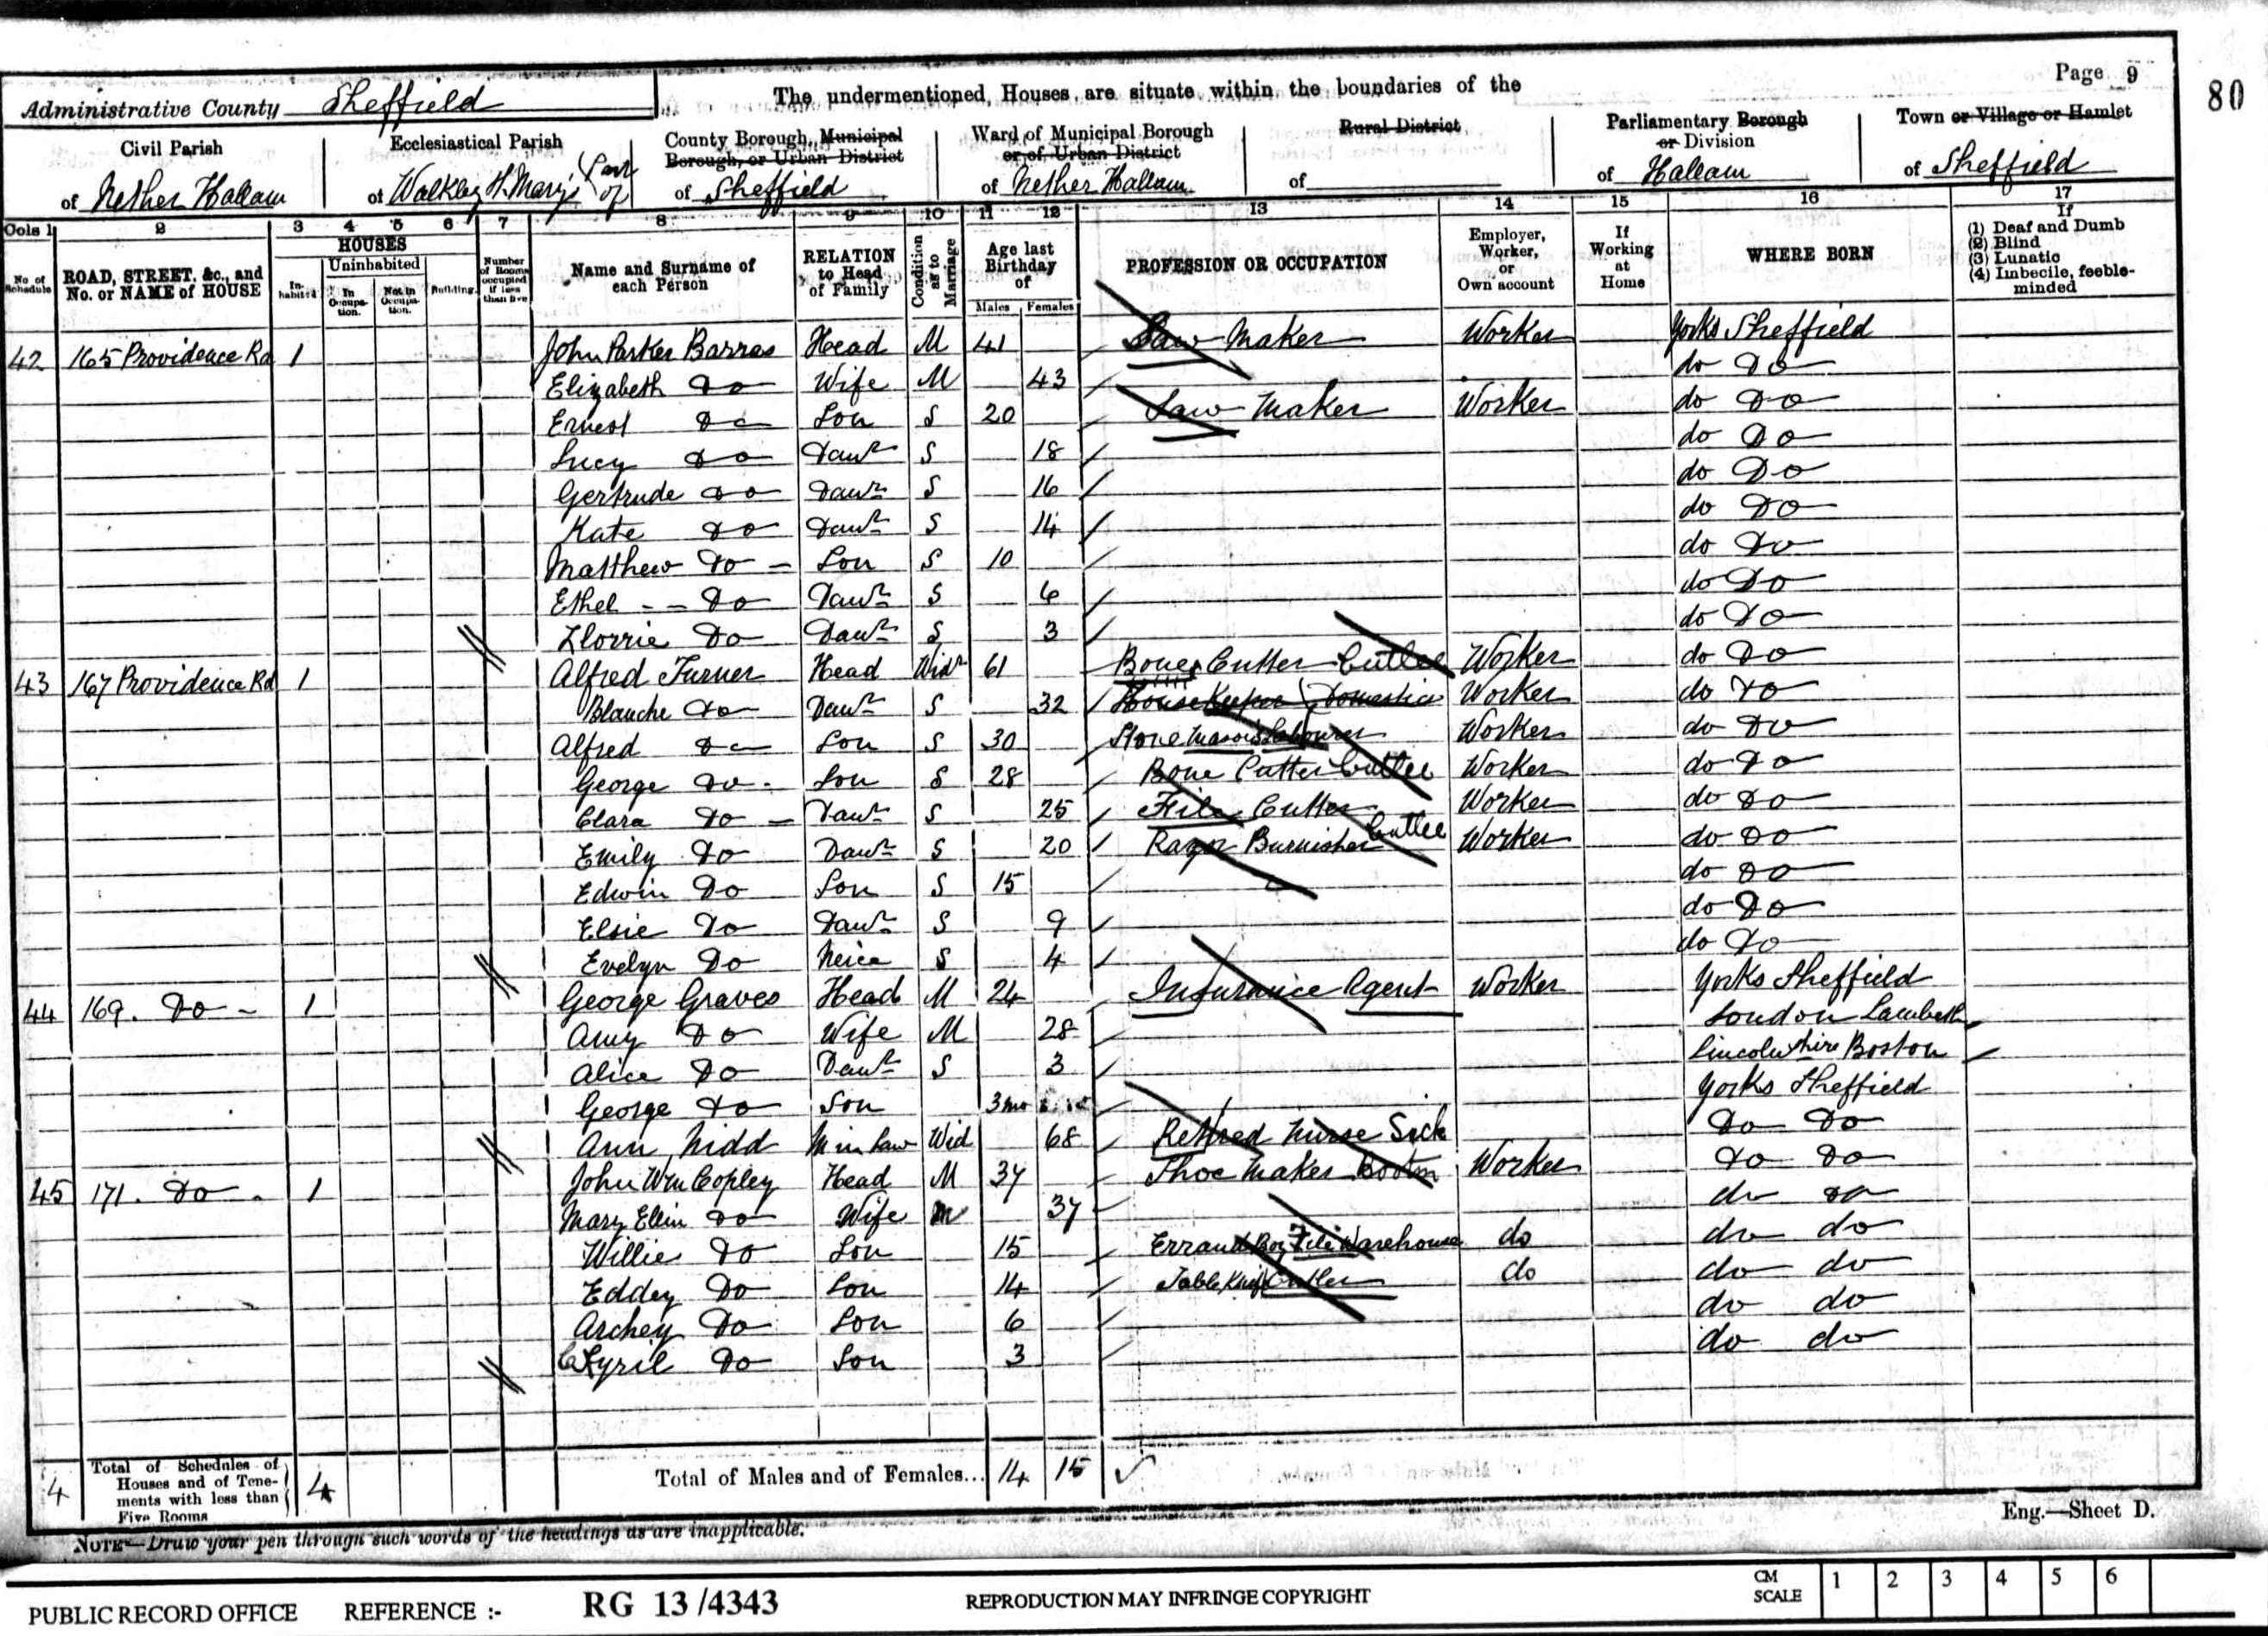 Page 9
80
Administrative County Sheffield
The undermentioned Houses are situate within the boundaries of the
Civil Parish
of Nether Hallam
Ecclesiastical Parish
of Walkley St. Mary's (Part of)
County Borough, Municipal Borough, or Urban District
of Sheffield
Ward of Municipal Borough or of Urban District
of Nether Hallam
Rural District
of
Parliamentary Borough or Division
of Hallam
Town or Village or Hamlet
of Sheffield
Cols 1 2 3 4 5 6 7 8 9 10 11 12 13 14 15 16 17
No of Schedule
ROAD, STREET, &c., and No. or NAME of HOUSE
HOUSES
Inhabited
Uninhabited
In Occupation.
Not in Occupation.
Building.
Number of Rooms occupied if less than five
Name and Surname of each Person
RELATION to Head of Family
Condition as to Marriage
Age last Birthday of
Males Females
PROFESSION OR OCCUPATION
Employer, Worker, or Own account
If Working at Home
WHERE BORN
If
(1) Deaf and Dumb
(2) Blind
(3) Lunatic
(4) Imbecile, feeble-minded
42 165 Providence Rd 1 John Parker Barras Head M 41 Saw Maker Worker Yorks Sheffield
Elizabeth Do Wife M 43 do Do
Ernest Do Son S 20 Saw Maker Worker do Do
Lucy Do Daur S 18 do Do
Gertrude Do Daur S 16 do Do
Kate Do Daur S 14 do Do
Matthew Do Son S 10 do Do
Ethel Do Daur S 6 do Do
Florrie Do Daur S 3 do Do
43 167 Providence Rd 1 Alfred Turner Head Widr 61 Bone Cutter Cutler Worker do Do
Blanche Do Daur S 32 House Keeper Domestic Worker do Do
Alfred Do Son S 30 Stone Mason's Labourer Worker do Do
George Do Son S 28 Bone Cutter Cutler Worker do Do
Clara Do Daur S 25 File Cutter Worker do Do
Emily Do Daur S 20 Razor Burnisher Cutler Worker do Do
Edwin Do Son S 15 do Do
Elsie Do Daur S 9 do Do
Evelyn Do Neice S 4 do Do
44 169. Do 1 George Graves Head M 24 Insurance Agent Worker Yorks Sheffield
Amy Do Wife M 28 London Lambeth
Alice Do Daur S 3 Lincolnshire Boston
George Do Son 3 mo Yorks Sheffield
Ann Nidd M in Law Wid 68 Retired Nurse Sick Do Do
45 171. Do 1 John Wm Copley Head M 37 Shoe Maker Worker Do Do
Mary Ellin Do Wife M 37 do Do
Willie Do Son 15 Errand Boy File Warehouse do do do
Eddey Do Son 14 Table Knife Cutler do do do
Archey Do Son 6 do do
Cyril Do Son 3 do do
4 Total of Schedules of Houses and of Tenements with less than Five Rooms 4
Total of Males and of Females... 14 15
Eng.—Sheet D.
NOTE—Draw your pen through such words of the headings as are inapplicable.
PUBLIC RECORD OFFICE REFERENCE :- RG 13/4343 REPRODUCTION MAY INFRINGE COPYRIGHT CM SCALE 1 2 3 4 5 6